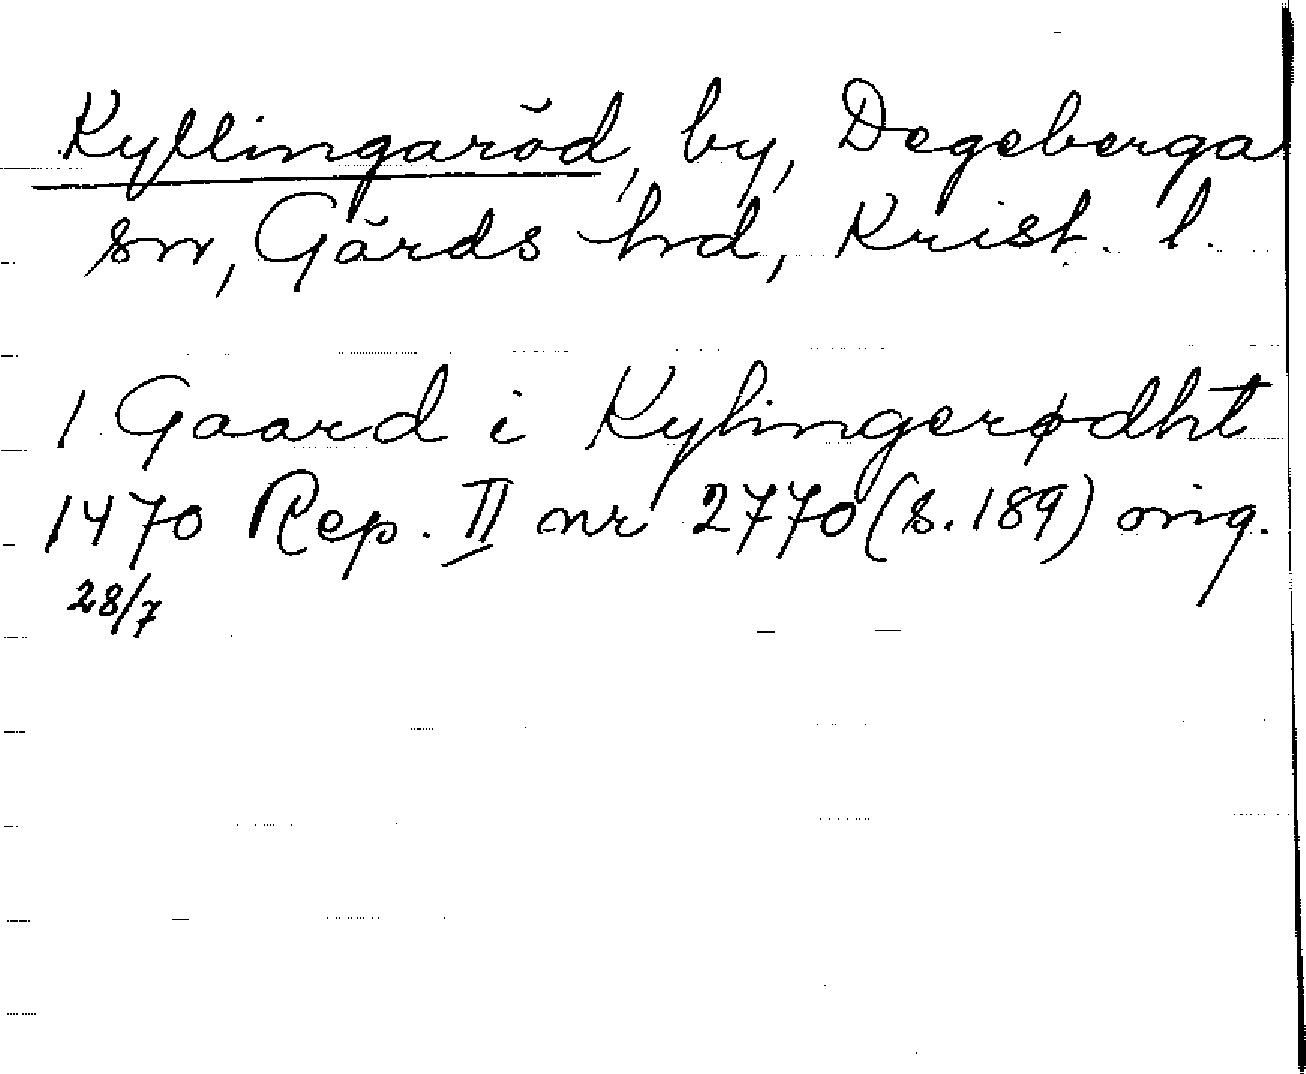 Kyllingaröd, by, Degeberga
sn, Gärds hd, Krist. l.
1 Gaard i Kylingerødht
1470 Rep. II nr 2770 (s. 189) orig.
28/7